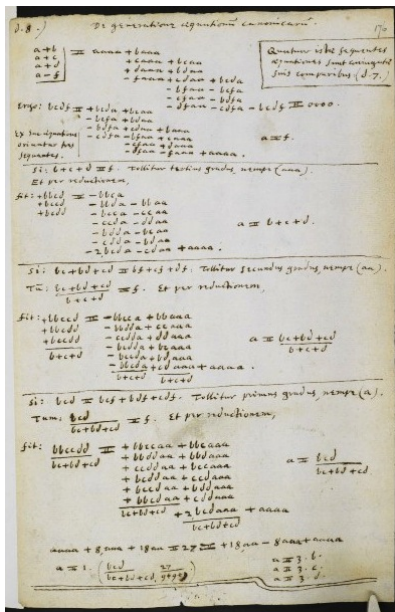 d.8.) De generatione æquationum canonicarum. 170
a+b
a+c
a+d
a-f
= aaaa + baaa
+ caaa + bcaa
+ daaa + bdaa
- faaa + cdaa + bcda
- bfaa - bcfa
- cfaa - bdfa
- dfaa - cdfa - bcdf = 0000.
sequentes
æquationes sunt
(d.7.)
Ergo: bcdf = + bcda + bcaa
- bcfa + bdaa
- bdfa + cdaa + baaa
- cdfa - bfaa + caaa
- cfaa + daaa
- dfaa - faaa + aaaa.
a = f.
Ex hac æquatione
oriuntur tres
sequentes.
Si: b+c+d = f. Tollitur tertius gradus, nempe (aaa).
Et per reductionem,
fit: +bbcd = - bbca
+bccd - bbda - bbaa
+bcdd - bcca - ccaa
- ccda - ddaa
- bdda - bcaa
- cdda - bdaa
- 2bcda - cdaa + aaaa.
a = b+c+d.
Si: bc+bd+cd = bf+cf+df. Tollitur secundus gradus, nempe (aa).
Tum: bc+bd+cd
b+c+d
= f. Et per reductionem,
fit: +bbccd = - bbcca + bbaaa
+bbcdd - bbdda + ccaaa
+bccdd - ccdda + ddaaa
b+c+d
+ aaaa.
b+c+d
a = bc+bd+cd
b+c+d
Si: bcd = bcf+bdf+cdf. Tollitur primus gradus, nempe (a).
Tum: bcd
bc+bd+cd
= f. Et per reductionem,
fit: bbccdd = + bbccaa + bbcaaa
bc+bd+cd + bbddaa + bbdaaa
+ ccddaa + bccaaa
+ bcddaa + ccdaaa
+ bccdaa + bddaaa
+ bbcdaa + cddaaa
bc+bd+cd + 2bcdaaa + aaaa
bc+bd+cd
a = bcd
bc+bd+cd.
a = 1. ( bcd
bc+bd+cd,
27
a = 3. b.
a = 3. c.
a = 3. d.